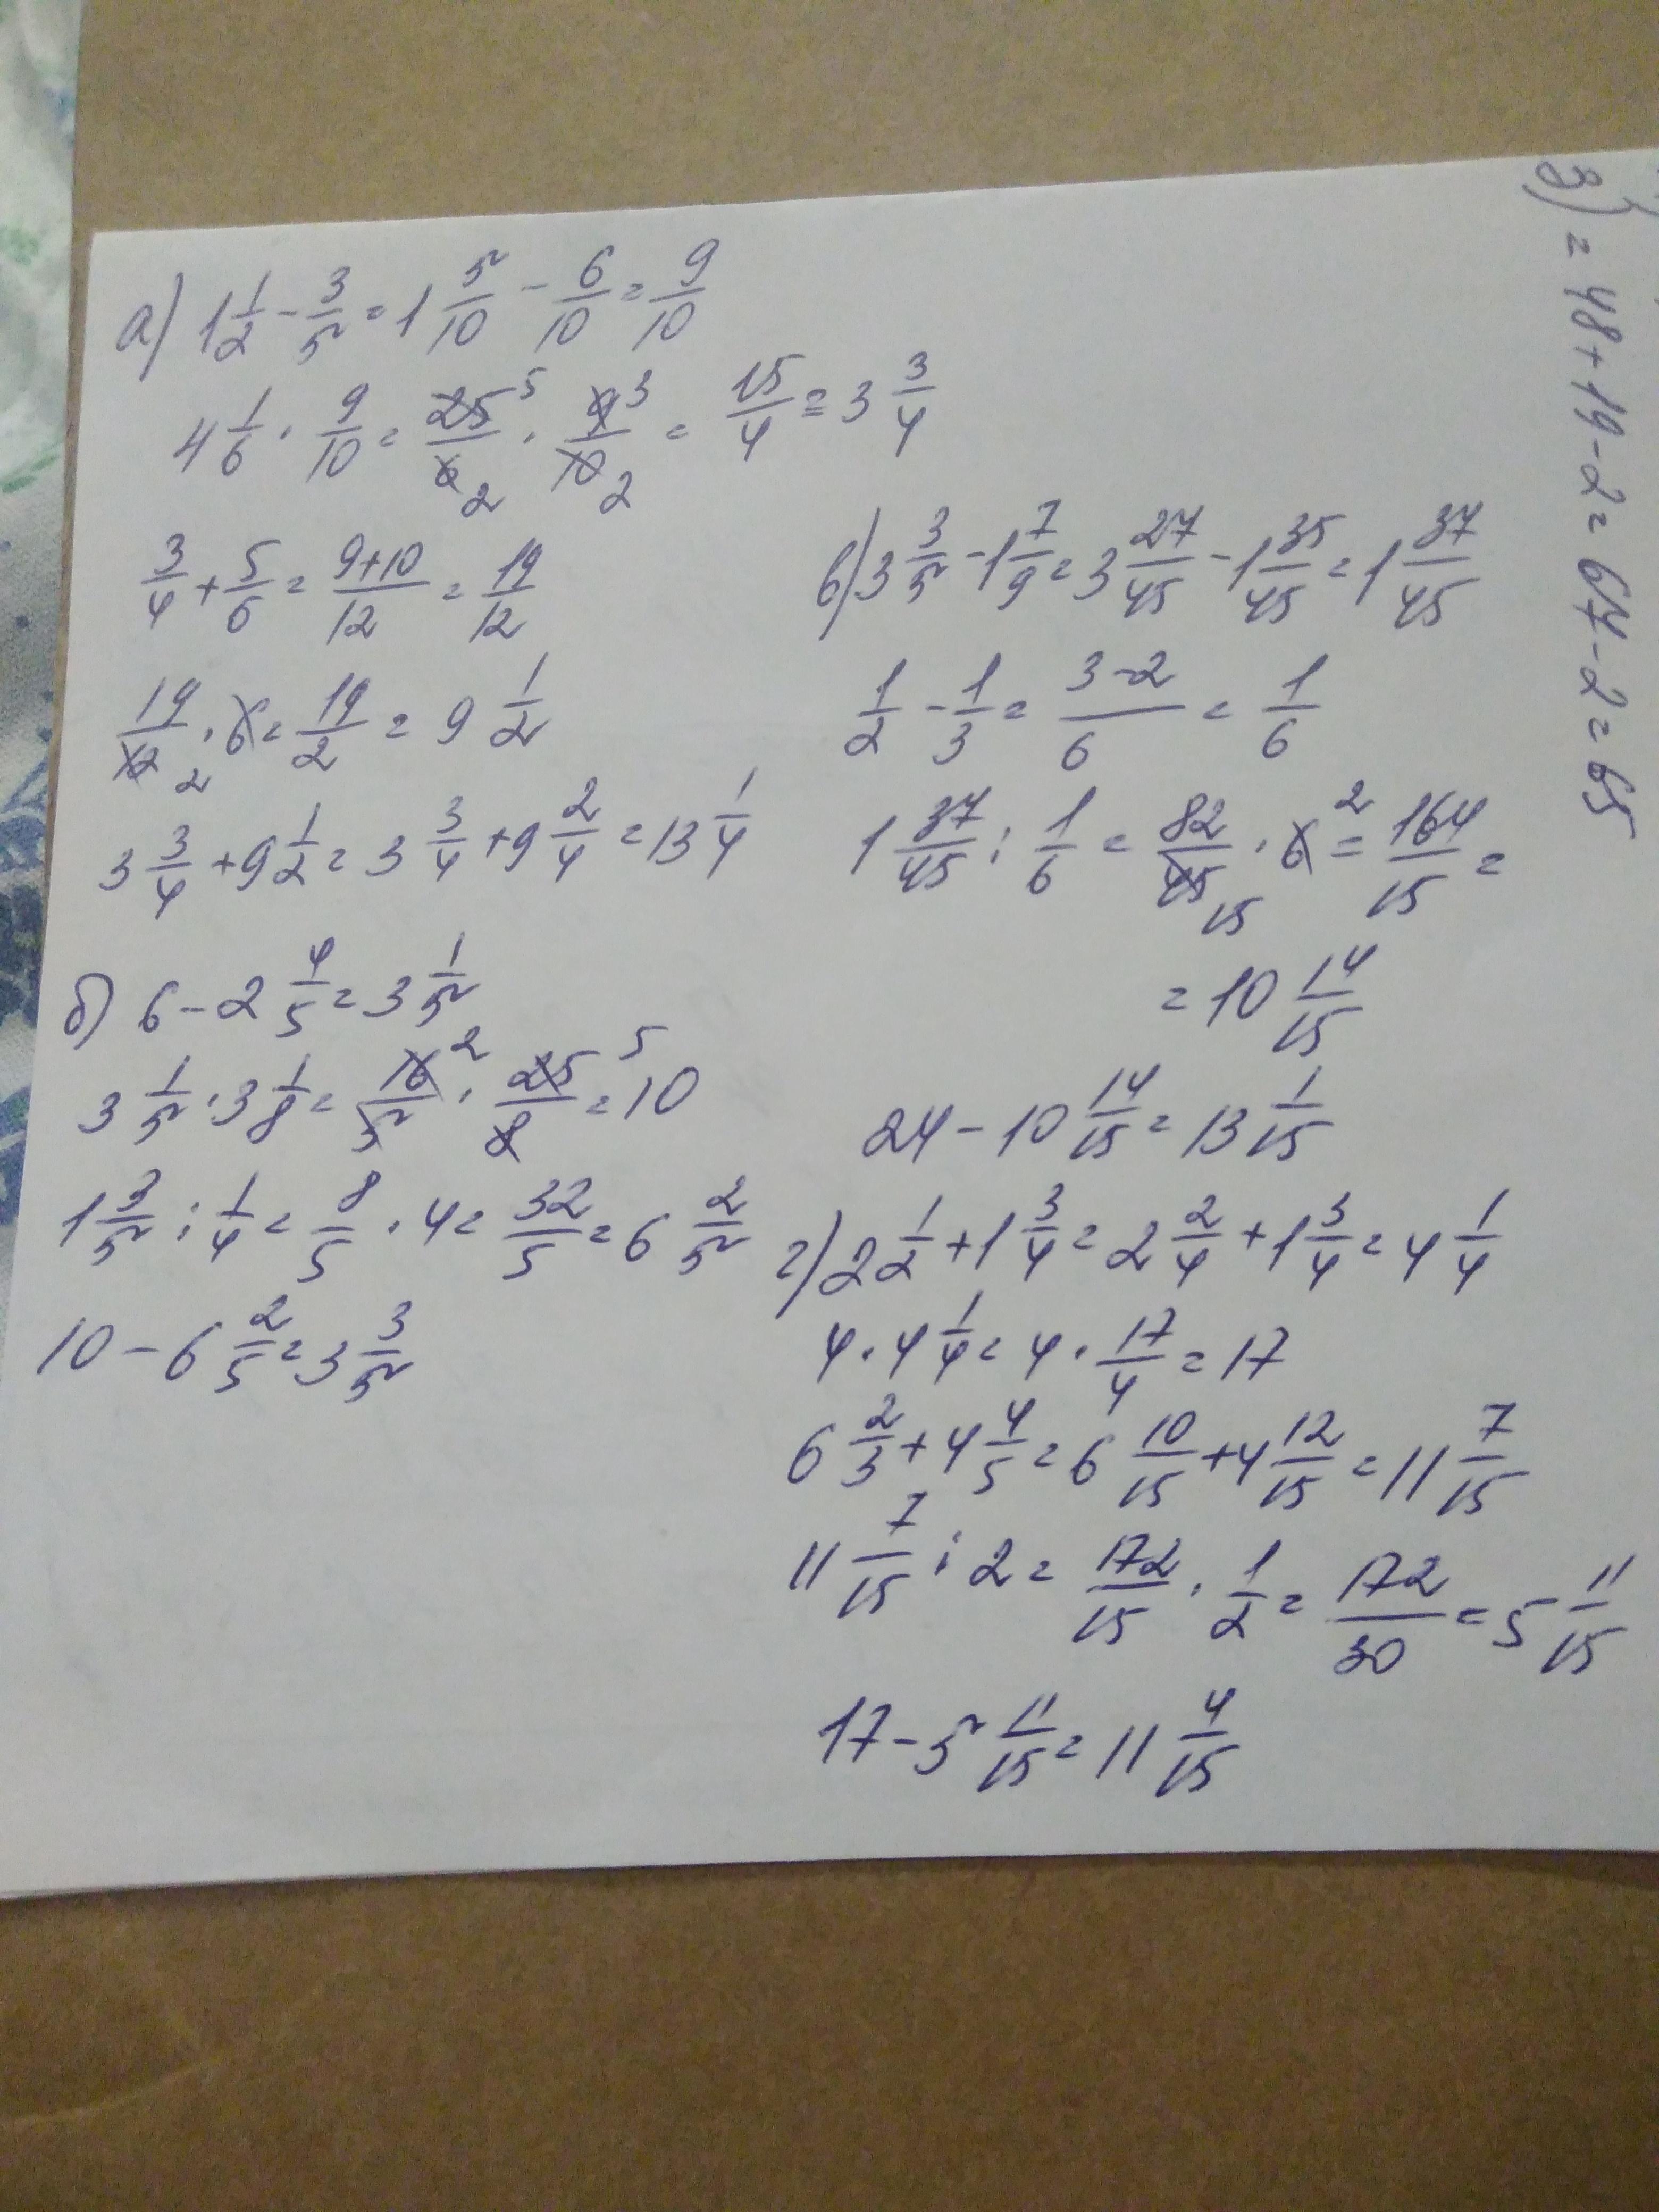 а) 1 1/2 - 3/5 = 1 5/10 - 6/10 = 9/10
4 1/6 · 9/10 = 25/6 · 9/10 = 15/4 = 3 3/4
3/4 + 5/6 = (9+10)/12 = 19/12
19/12 · 6 = 19/2 = 9 1/2
3 3/4 + 9 1/2 = 3 3/4 + 9 2/4 = 13 1/4
б) 6 - 2 4/5 = 3 1/5
3 1/5 · 3 1/8 = 16/5 · 25/8 = 10
1 3/5 : 1/4 = 8/5 · 4 = 32/5 = 6 2/5
10 - 6 2/5 = 3 3/5
в) 3 3/5 - 1 7/9 = 3 27/45 - 1 35/45 = 1 37/45
1/2 - 1/3 = (3-2)/6 = 1/6
1 37/45 : 1/6 = 82/45 · 6 = 164/15 =
= 10 14/15
24 - 10 14/15 = 13 1/15
г) 2 1/2 + 1 3/4 = 2 2/4 + 1 3/4 = 4 1/4
4 · 4 1/4 = 4 · 17/4 = 17
6 2/3 + 4 4/5 = 6 10/15 + 4 12/15 = 11 7/15
11 7/15 : 2 = 172/15 · 1/2 = 172/30 = 5 11/15
17 - 5 11/15 = 11 4/15
= 48 + 19 - 2 = 67 - 2 = 65